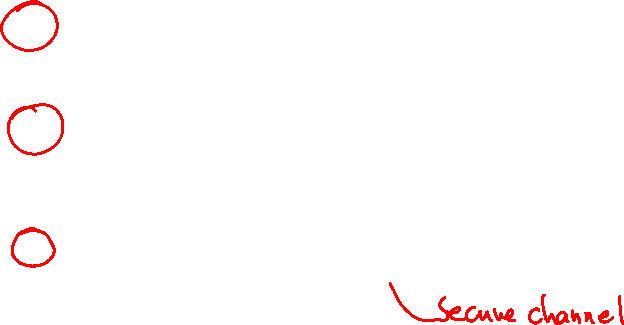 Secure channel